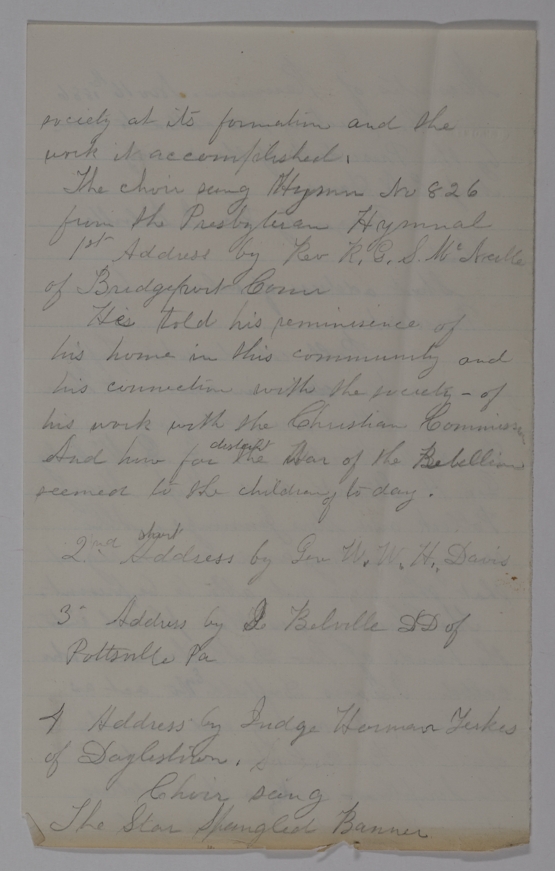 society at its formation and the
work it accomplished.
The choir sung Hymn No 826
from the Presbyterian Hymnal
1st Address by Rev R. G. S. McNeille
of Bridgeport Conn
He told his reminisence of
his home in this community and
his connection with the society - of
his work with the Christian Commission
And how far distant the War of the Rebellion
seemed to the children of to day.
2nd short Address by Gen W. W. H. Davis
3 Address by Belville DD of
Pottsville Pa
4 Address by Judge Harman Yerkes
of Doylestown.
Choir sang
The Star Spangled Banner